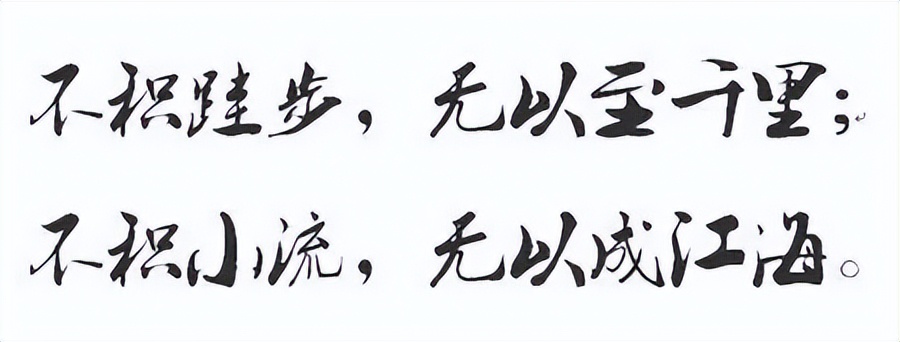 不积跬步，无以至千里；
不积小流，无以成江海。